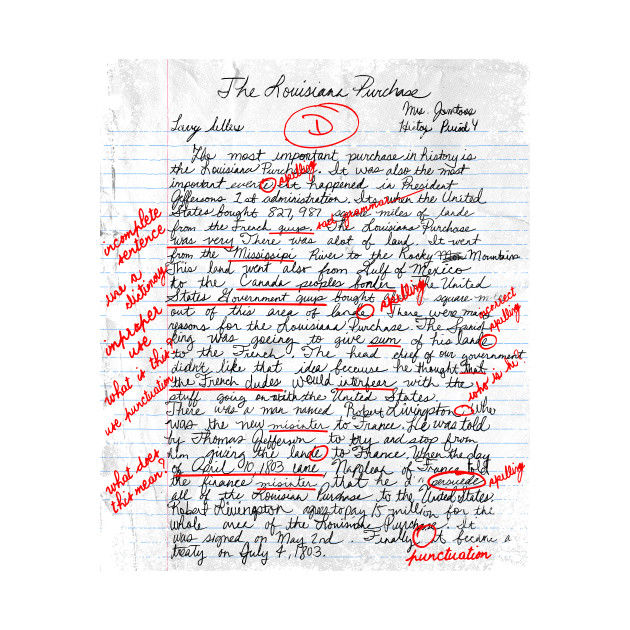 The Louisiana Purchase
Mrs.
D
Larry Sellers
History Period 4
The most important purchase in history is
the Louisiana Purchase. It was also the most
spelling
important evente. It happened in President
Jeffersons 1st administration. Its when the United
States bought 827,987 square miles of lande
from the French guys. The Louisiana Purchase
incomplete
sentence
was very There was alot of land. It went
from the Mississipi River to the Rocky Mountains
This land went also from Gulf of Mexico
use a
dictionary
to the Canada peoples border. The United
spelling
States Government guys bought square
out of this area of lande There were many
incorrect
spelling
improper
use
reasons for the Louisiana Purchase. The Spanish
King was goeing to give sum of his lande
to the French. The head cheif of our government
what is this
didn't like that idea because he thought that
who is he
the French dudes would interfear with the
use punctuation
stuff going on with the United States.
There was a man named Robert Livingston. Who
was the new misinter to France. He was told
by Thomas Jefferson to try and stop from
him giving the lande to France. When the day
what does
this mean?
of April 10, 1803 came, Naplean of France told
the finance misinter that he persuede
spelling
all of the Louisian Purchase to the United States.
Robert Livingston agrees to pay 15 million for the
whole area of the Louisiana Purchase. It
was signed on May 2nd. Finally it became a
treaty on July 4, 1803.
punctuation